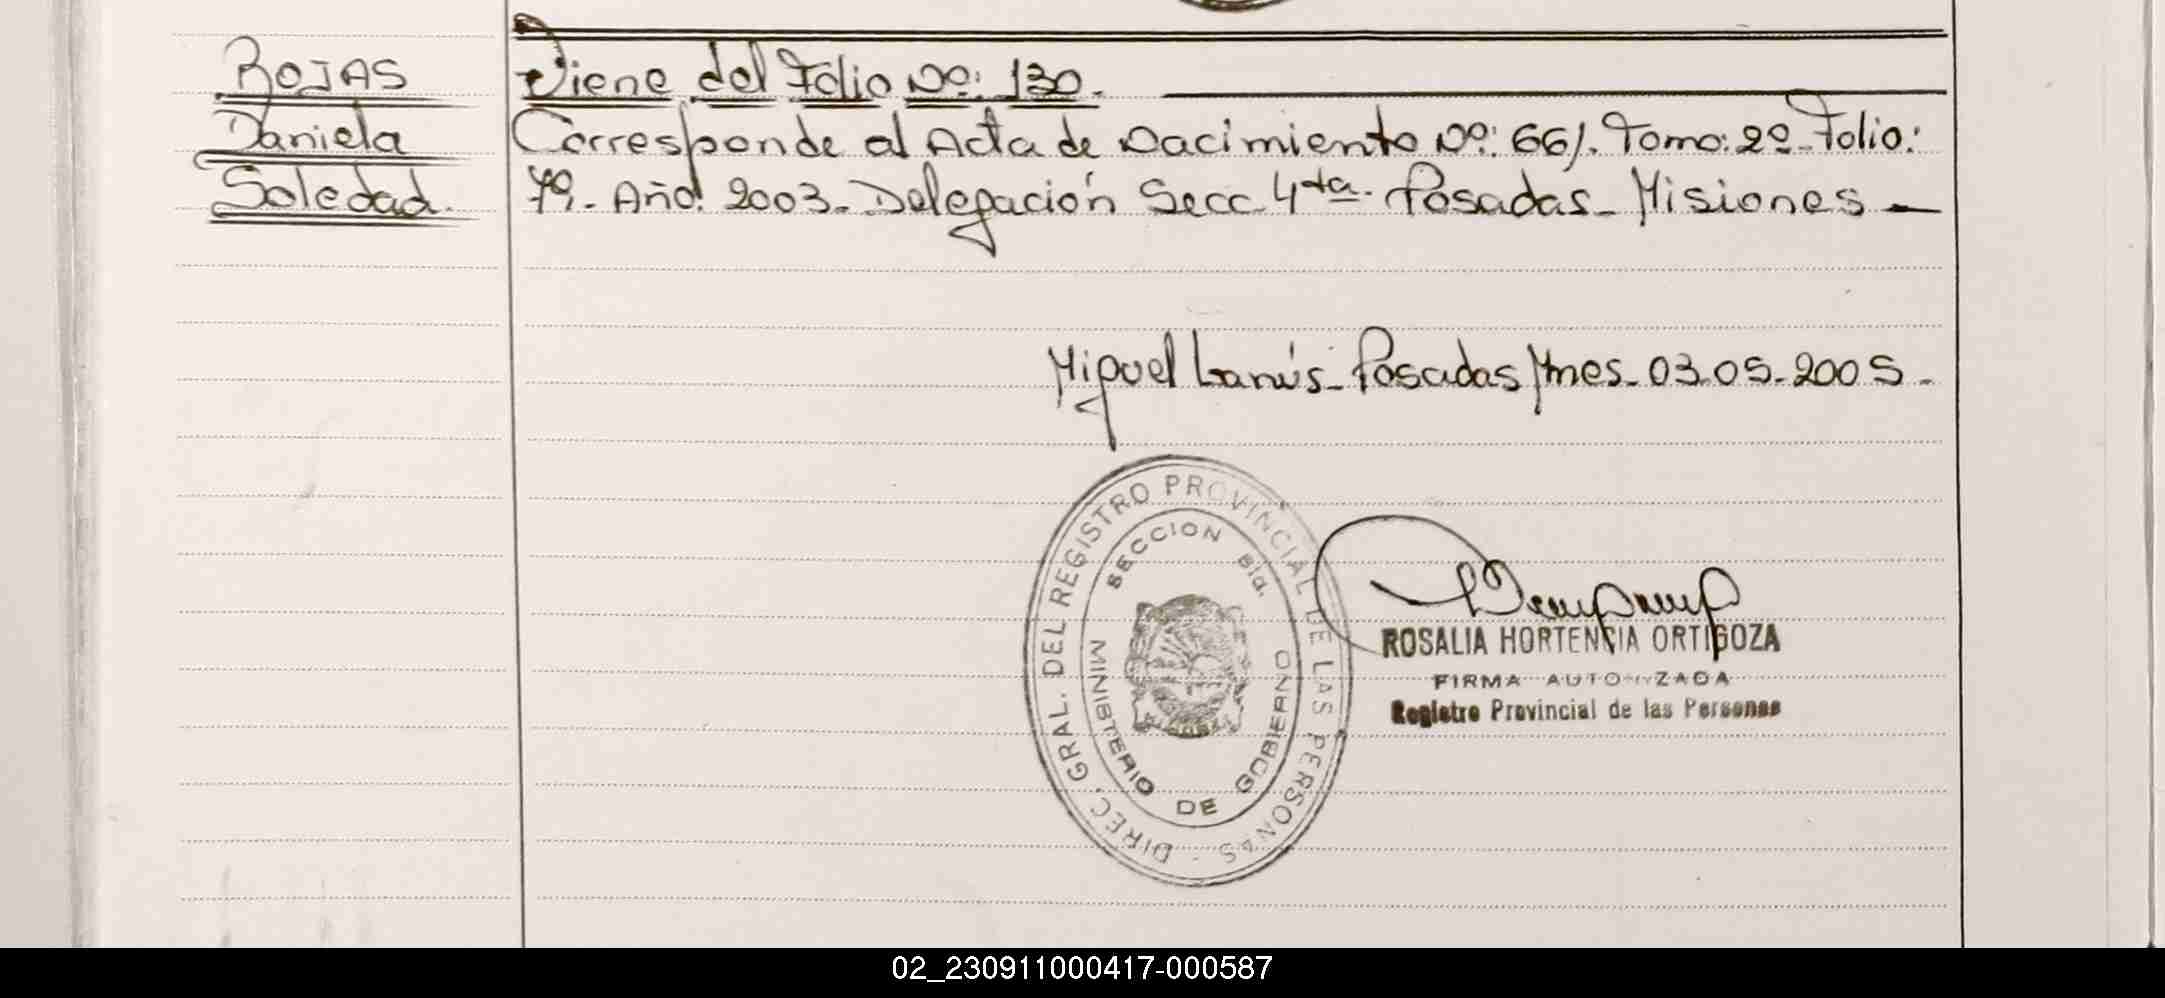 ROJAS
Daniela
Soledad.
Viene del Folio Nº: 130.
Corresponde al Acta de Nacimiento Nº: 661. Tomo: 2º. Folio:
79.- Año: 2003.- Delegación Secc. 4ta. Posadas - Misiones -
Miguel Lanús - Posadas Mnes. 03.05.2005.-
DIREC. GRAL. DEL REGISTRO PROVINCIAL DE LAS PERSONAS -
SECCION 8va.
MINISTERIO DE GOBIERNO
ROSALIA HORTENCIA ORTIGOZA
FIRMA AUTORIZADA
Registro Provincial de las Personas
02_230911000417-000587